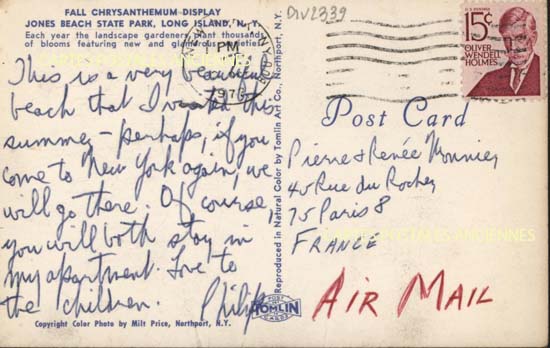 FALL CHRYSANTHEMUM DISPLAY
JONES BEACH STATE PARK, LONG ISLAND, N.Y.
Each year the landscape gardeners plant thousands
of blooms featuring new and glamorous varieties.
This is a very beautiful
beach that I visited this
summer - perhaps, if you
come to New York again, we
will go there. Of course,
you will both stay in
my apartment. Love to
the children.
Philip
Copyright Color Photo by Milt Price, Northport, N.Y.
Reproduced in Natural Color by Tomlin Art Co., Northport, N.Y.
POST
TOMLIN
CARDS
DIV2339
PM
197
U.S. POSTAGE
15¢
OLIVER
WENDELL
HOLMES
Post Card
Pierre & Renée Mounier
40 Rue du Rocher
75 Paris 8
FRANCE
AIR MAIL
CARTES POSTALES ANCIENNES